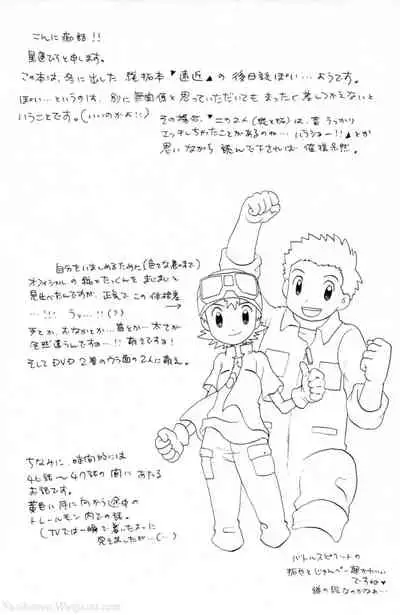 こんに痴話!!
星　ひろと申します。
この本は、今に出した 純拓本▼遠近▲の後日談ぽい…ようです。
ぽい…というのは、別に無関係と思っていただいてもまったく差しつかえないと
いうことです。(いいのかよ!!)
その場合、▼この2人(純と拓)は、昔うっかり
エッチしちゃったことがあるのね…▲とか
思いながら 読んで下されば
自分をいましめるために(色々な意味で)
オフィシャルの純とたっくんをまじまじと
見比べたんですが、正気で この体格差
…!!! うっ…!!(う)
手とか、おなかとか…首とか…太さが
全然違うんですね…!! 萌えですよ!
そしてDVD 2巻のウラ面の2人に萌え。
ちなみに、時間的には
46話〜47話の間にあたる
お話です。
黄色い月に向かう途中の
トレールモン内での話。
(TVでは一瞬で着いたように
見えましたが…(…)
バトルスピリットの
拓也とじゅんぺー超かわいい
ですね♥
Yaoihaven.Wiegjana.com